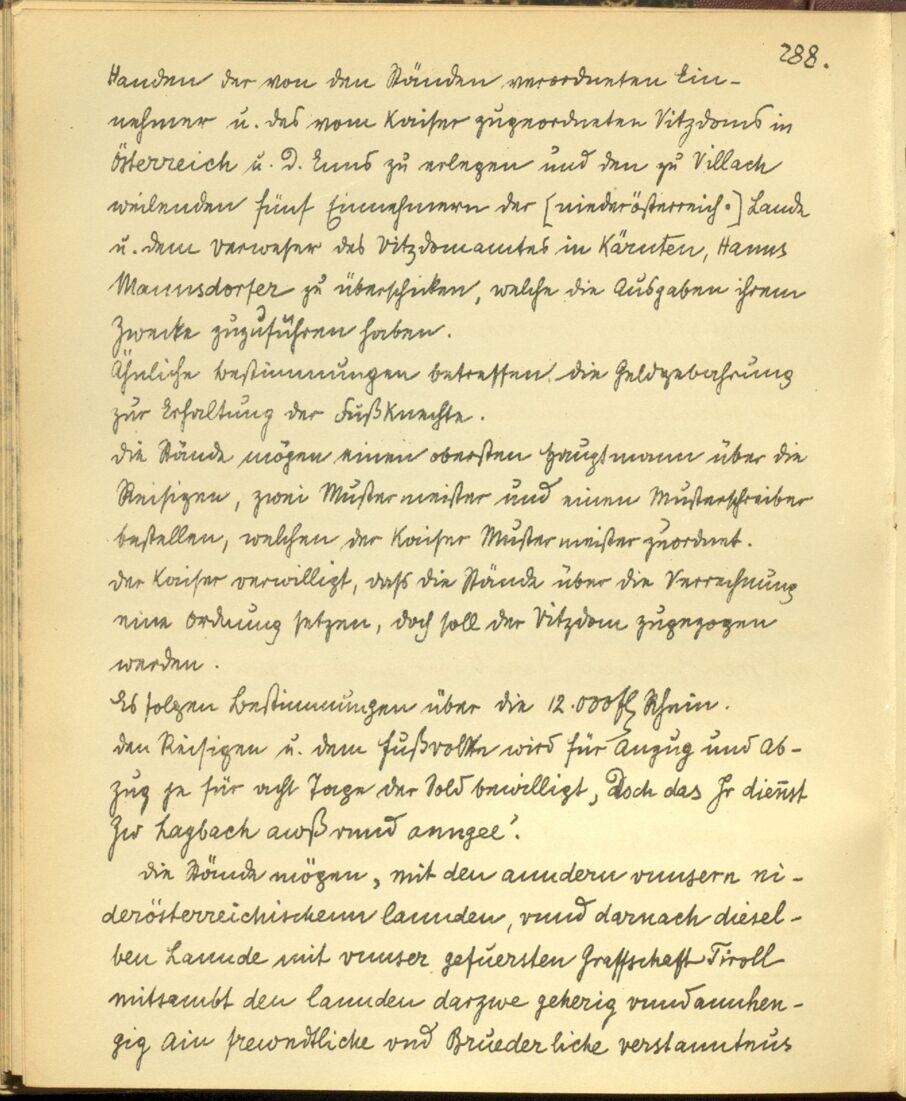 288.
Handen der von den Ständen verordneten Ein-
nehmer u. des vom Kaiser zugeordneten Vitzdoms in
Österreich u. D. Enns zu erlegen und den zu Villach
weilenden fünf Einnehmern der [niederösterreich.] Lande
u. dem Verweser des Vitzdomamtes in Kärnten, Hanns
Mannsdorfer zu überschicken, welche die Ausgaben ihrem
Zwecke zuzuführen haben.
Ähnliche Bestimmungen betreffen die Geldgebahrung
zur Erhaltung der Fußknechte.
Die Stände mögen einen obersten Hauptmann über die
Reisigen, zwei Mustermeister und einen Musterschreiber
bestellen, welchen der Kaiser Mustermeister zuordnet.
Der Kaiser verwilligt, daß die Stände über die Verrechnung
eine Ordnung setzen, doch soll der Vitzdom zugezogen
werden.
Es folgen Bestimmungen über die 12.000 fl Rhein.
Den Reisigen u. dem Fußvolke wird für Anzug und Ab-
zug je für acht Tage der Sold bewilligt, „Doch das Jr dienst
Zw Laybach awß vnnd anngee".
Die Stände mögen „mit den anndern vnnsern ni-
derösterreichischenn lannden, vnnd darnach diesel-
ben Lannde mit vnnser gefuersten Graffschafft Tiroll
mitsambt den lannden darzwe geherig vnnd annhen-
gig ain frewndtliche vnd Bruederliche verstanntnus